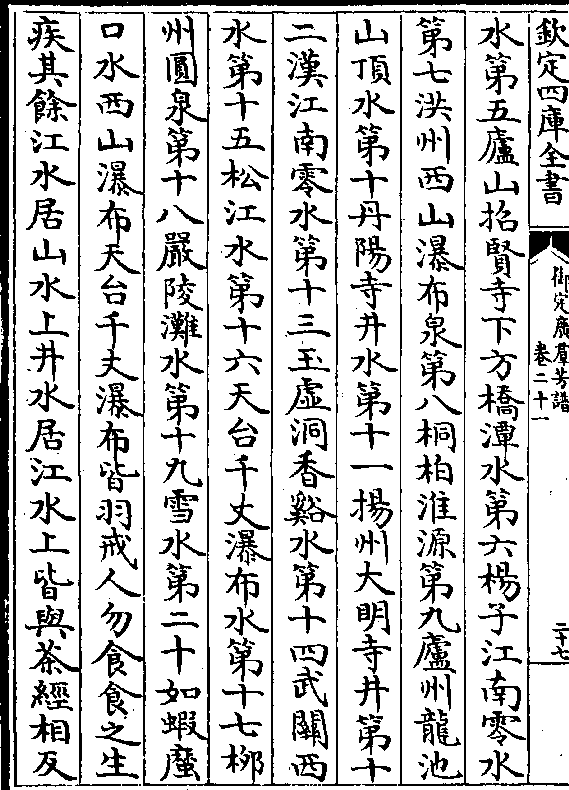 欽定四庫全書
御定廣羣芳譜
卷二十一
二十七
水第五廬山招賢寺下方橋潭水第六楊子江南零水
第七洪州西山瀑布泉第八桐柏淮源第九廬州龍池
山頂水第十丹陽寺井水第十一揚州大明寺井第十
二漢江南零水第十三玉虛洞香谿水第十四武關西
水第十五松江水第十六天台千丈瀑布水第十七郴
州圓泉第十八嚴陵灘水第十九雪水第二十如蝦蟇
口水西山瀑布天台千丈瀑布皆羽戒人勿食食之生
疾其餘江水居山水上井水居江水上皆與茶經相反